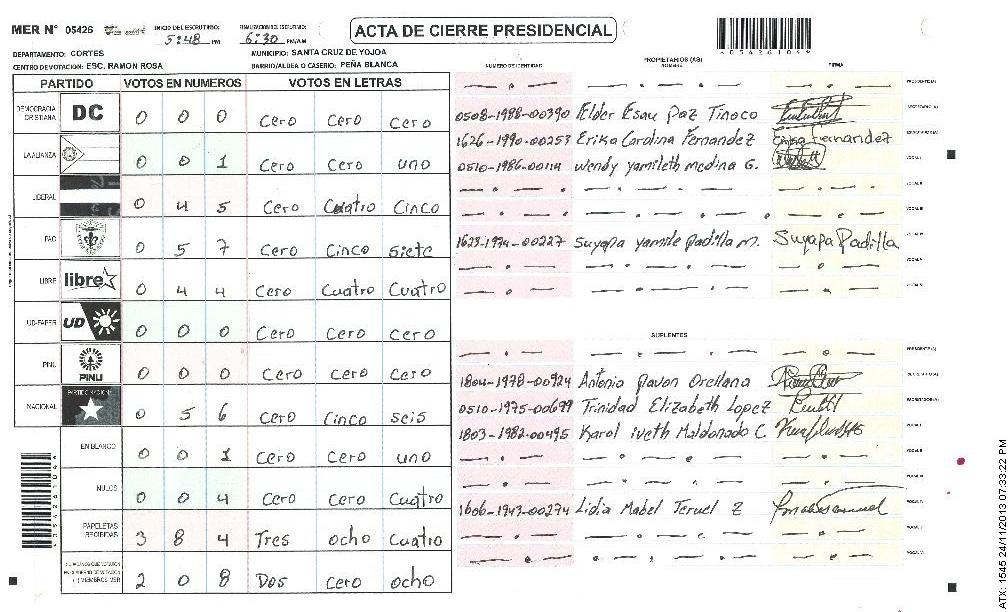 MER N° 05426
INICIO DEL ESCRUTINIO: 5:48 PM
FINALIZACION DEL ESCRUTINIO: 6:30 PM/AM
ACTA DE CIERRE PRESIDENCIAL
DEPARTAMENTO: CORTES
MUNICIPIO: SANTA CRUZ DE YOJOA
CENTRO DE VOTACION: ESC. RAMON ROSA
BARRIO/ALDEA O CASERIO: PEÑA BLANCA
PARTIDO VOTOS EN NUMEROS VOTOS EN LETRAS
DEMOCRACIA CRISTIANA DC 0 0 0 Cero Cero Cero
LA ALIANZA 0 0 1 Cero Cero uno
LIBERAL 0 4 5 Cero Cuatro Cinco
PAC 0 5 7 Cero Cinco siete
LIBRE libre 0 4 4 Cero Cuatro Cuatro
UD-FAPER UD 0 0 0 Cero Cero Cero
PINU PINU 0 0 0 Cero Cero Cero
NACIONAL PARTIDO NACIONAL 0 5 6 Cero Cinco seis
EN BLANCO 0 0 1 Cero Cero uno
NULOS 0 0 4 Cero Cero Cuatro
PAPELETAS RECIBIDAS 3 8 4 Tres ocho cuatro
2 0 8 Dos Cero ocho
PROPIETARIOS (AS)
NUMERO DE IDENTIDAD NOMBRE FIRMA
PRESIDENTE (A)
0508-1988-00390 Elder Esau Paz Tinoco SECRETARIO (A)
1626-1990-00253 Erika Carolina Fernandez Erika Fernandez
0510-1986-00114 Wendy yamileth medina G. VOCAL I
VOCAL II
VOCAL III
1623-1974-00227 Suyapa yamile Padilla m. Suyapa Padilla VOCAL IV
VOCAL V
VOCAL VI
SUPLENTES
PRESIDENTE (A)
1804-1978-00924 Antonia Pavon Orellana SECRETARIO (A)
0510-1975-00699 Trinidad Elizabeth Lopez ESCRUTADOR (A)
1803-1982-00495 Karol iveth Maldonado C. VOCAL I
VOCAL II
VOCAL III
1606-1943-00274 Lidia Mabel Teruel Z VOCAL IV
VOCAL V
VOCAL VI
ATX: 1545 24/11/2013 07:33:22 PM